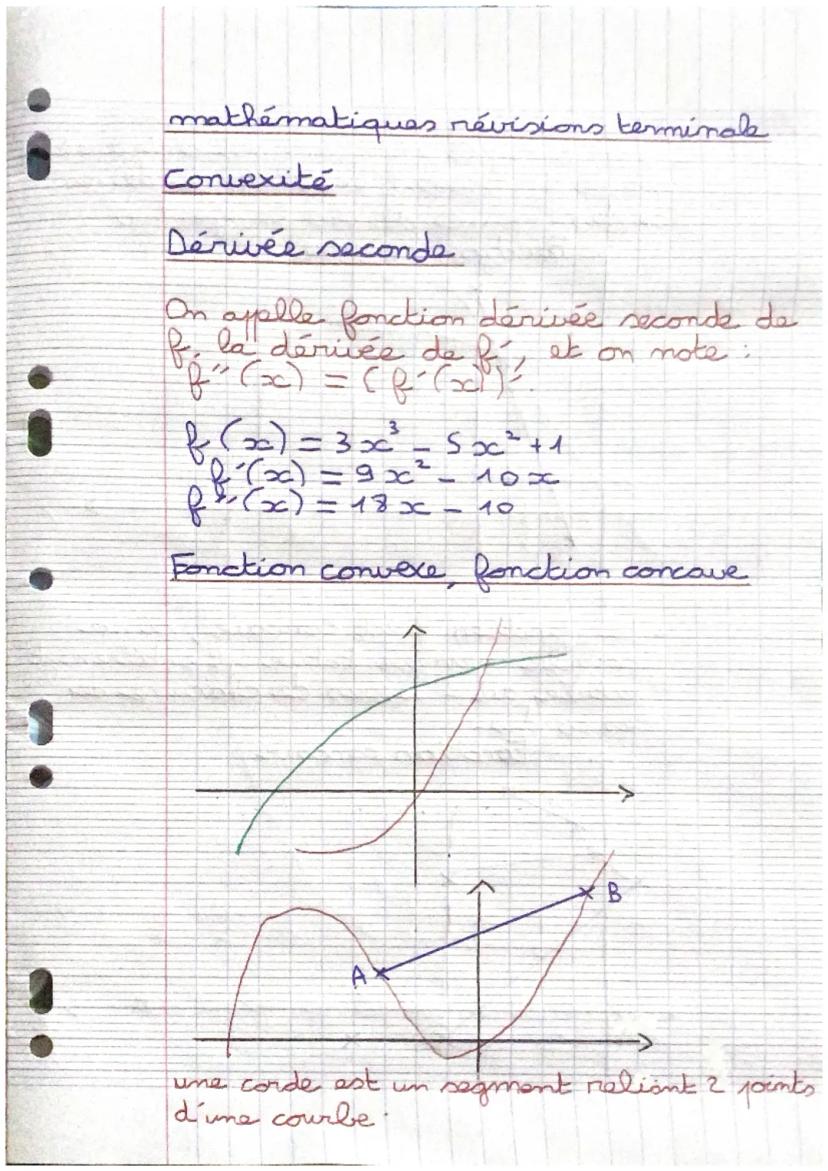 mathématiques révisions terminale
Convexité
Dérivée seconde
On appelle fonction dérivée seconde de
f, la dérivée de f', et on note :
f''(x) = (f'(x))'.
f(x) = 3x³ - 5x² + 1
f'(x) = 9x² - 10x
f''(x) = 18x - 10
Fonction convexe, fonction concave
B
A
une corde est un segment reliant 2 points
d'une courbe.